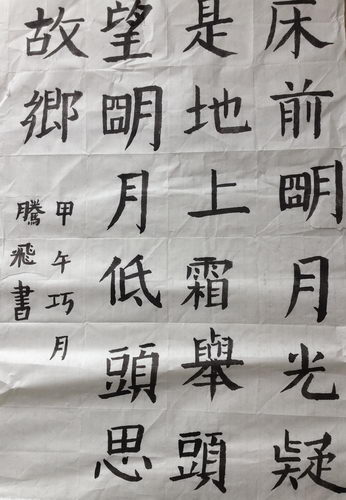 床前朙月光疑
是地上霜舉頭
望朙月低頭思
故鄉
甲午巧月
騰飛書